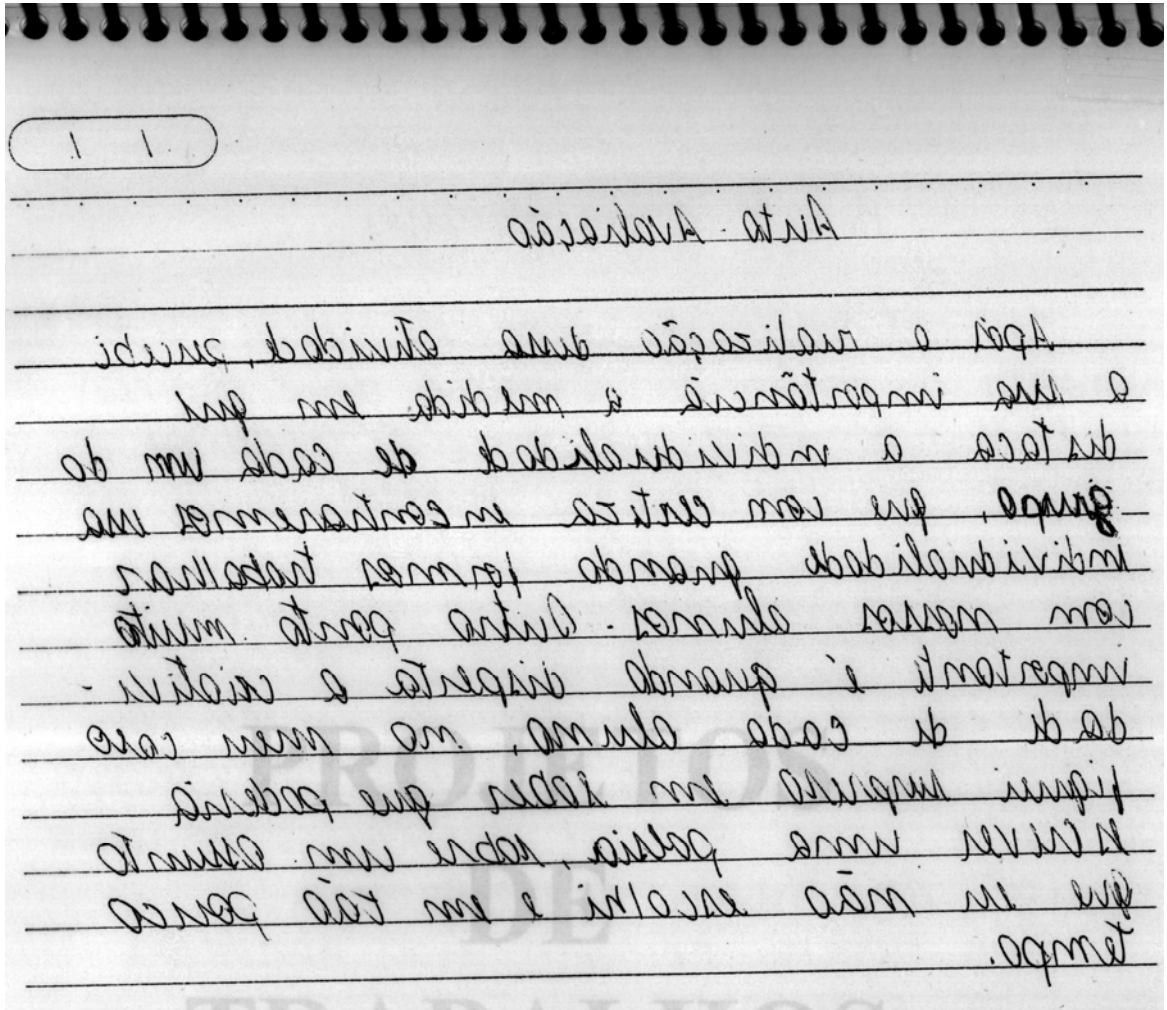 Auto-Avaliação
Após a realização dessa atividade, percebi
a sua importância a medida em que
destaca a individualidade de cada um do
grupo, que com certeza encontraremos essa
individualidade quando formos trabalhar
com nossos alunos. Outro ponto muito
importante é quando desperta a criativi-
dade de cada aluno, no meu caso
fiquei surpresa em saber que poderia
escrever uma poesia, sobre um assunto
que eu não escolhi e em tão pouco
tempo.
PROJETOS
DE
TRABALHOS